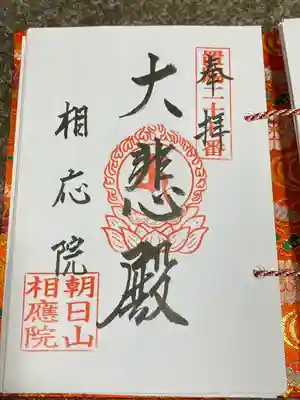 奉拝
大悲殿
相応院
朝日山
相應院